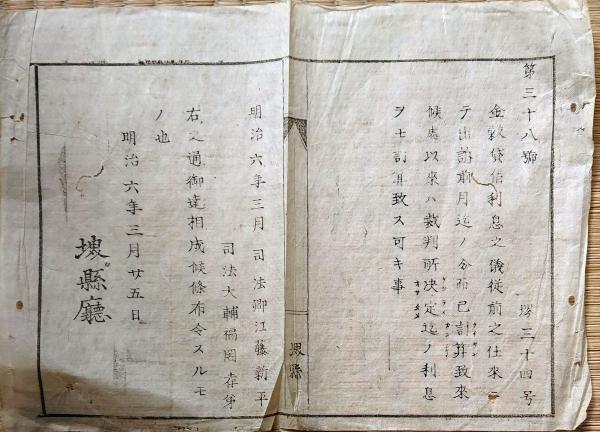 第三十八號
堺三十四号
金穀貸借利息之儀従前之仕來ニ
テ出訴前月迄ノ分而已計算致來
候處以來ハ裁判所決定迄ノ利息
ヲモ計算致ス可キ事
明治六年三月 司法卿江藤新平
司法大輔福岡孝弟
右之通御達相成候條布令スルモ
ノ也
明治六年三月廿五日
堺縣廳
堺縣